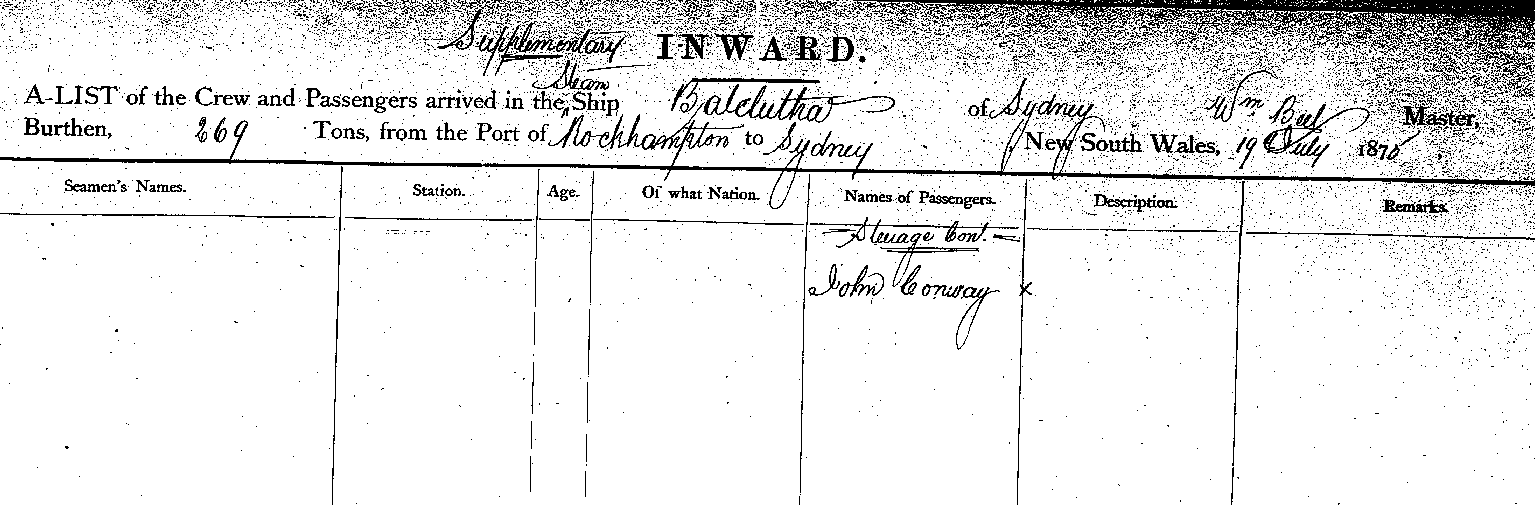 Supplementary INWARD.
Steam
A-LIST of the Crew and Passengers arrived in the ^ Ship Balclutha of Sydney Wm Beel Master,
Burthen, 269 Tons, from the Port of Rockhampton to Sydney, New South Wales, 19 July 1875.
Seamen's Names. Station. Age. Of what Nation. Names of Passengers. Description. Remarks.
Steerage Cont.
John Conway x